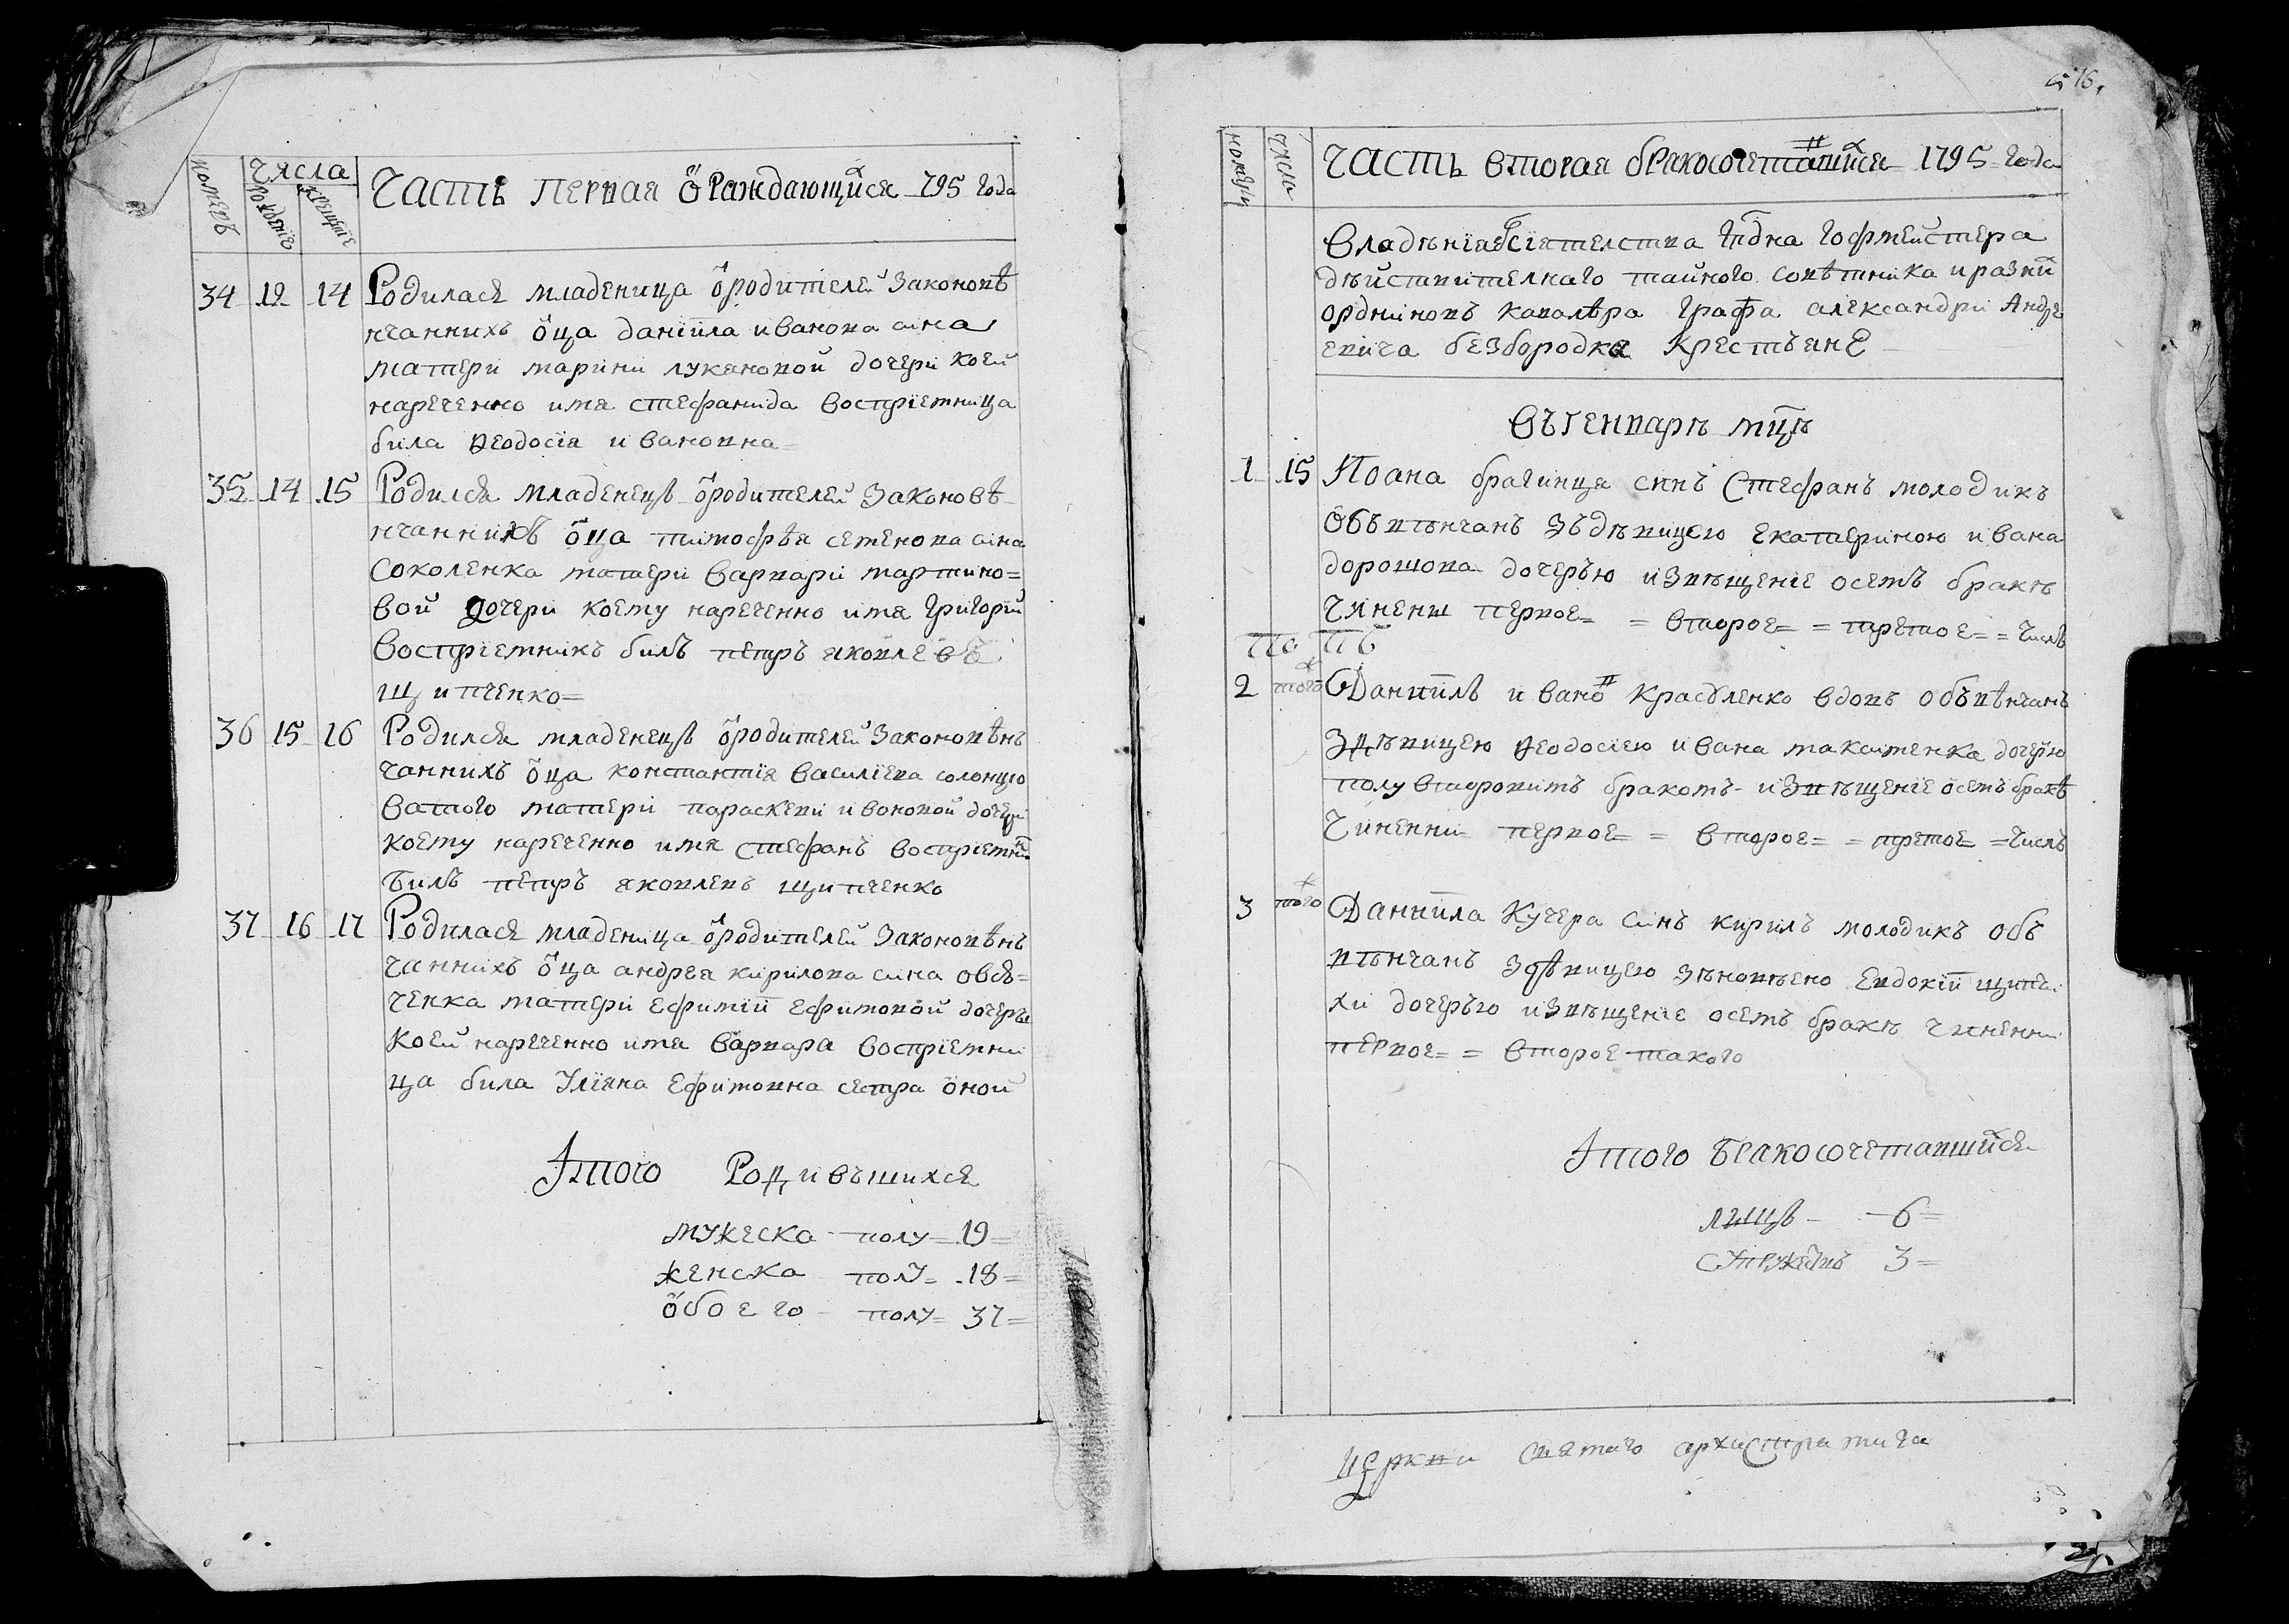 номеръ
Числа
рожденїе
крещенїе
Часть первая о раждающихся 795 года
34 12 14 Родилася младеница о родителей законовѣ
нчаннихъ оца данїила иванова сина
матери марини лукяновой дочери коей
нареченно имя стефанида восприемница
била Ѳеодосія ивановна
35 14 15 Родился младенецъ о родителей законовѣ
нчаннихъ оца тимофѣя семенова сина
соколенка матери варвари мартино=
вой дочери коему нареченно имя григорій
восприемникъ билъ петръ яковлевъ
щипченко=
36 15 16 Родился младенецъ о родителей законовѣн
чаннихъ оца константія василіева солонцю
ватого матери параскеви ивановой дочери
коему нареченно имя стефанъ восприемни
билъ петръ яковлевъ щипченко
37 16 17 Родилася младеница о родителей законовѣнъ
чаннихъ оца андрея кирилова сина овся=
ченка матери ефимїи ефимовой дочери
коей нареченно имя варвара восприемни
ца била Уліяна Ефимовна сестра оной
Ітого Родивъшихся
мужеска полу= 19=
женска полу= 18=
обоего полу= 37=
16.
номери
числа
Часть вторая бракосочетавшихся 1795 года
Владѣнія сіятелства гпдна гофмейстера
дѣйствителнаго тайного совѣтника и разних
ордниновъ кавалѣра графа александри Андре
евича безбородка крестъяне
въ генварѣ мцѣ
1 15 Іоана брагинца синъ стефанъ молодикъ
объвѣнчанъ зъ дѣвицею екатериною ивана
дорошова дочеръю извѣщеніе осемъ бракѣ
чинени первое= = второе= = третое= = числъ
2 того Данїилъ иванов красуленко вдовъ объвѣнчанъ
з дѣвицею Ѳеодосіею ивана максименка дочерю
полувторовимъ бракомъ извѣщеніе осемъ бракѣ
чиненни первое= = второе= = третое =числъ
3 того Данїила Кучера синъ кирилъ молодикъ объ
вѣнчанъ з дѣвицею зѣновѣею Евдокїи щипъ
хи дочеръю извѣщеніе осемъ бракѣ чиненни
первое= = второе такого
Ітого Бракосочетавшихся
лицъ 6=
супружевъ 3=
церкви святаго архистратига